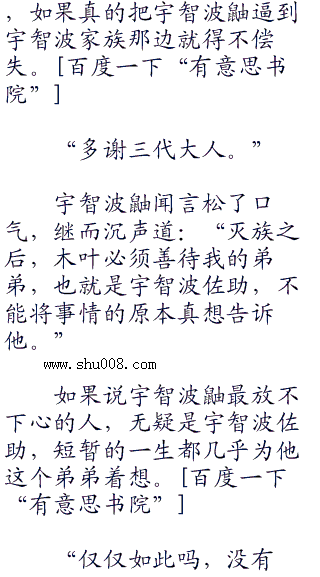 ，如果真的把宇智波鼬逼到
宇智波家族那边就得不偿
失。[百度一下“有意思书
院”]
“多谢三代大人。”
宇智波鼬闻言松了口
气，继而沉声道：“灭族之
后，木叶必须善待我的弟
弟，也就是宇智波佐助，不
能将事情的原本真想告诉
他。”
www.shu008.com
如果说宇智波鼬最放不
下心的人，无疑是宇智波佐
助，短暂的一生都几乎为他
这个弟弟着想。[百度一下
“有意思书院”]
“仅仅如此吗，没有